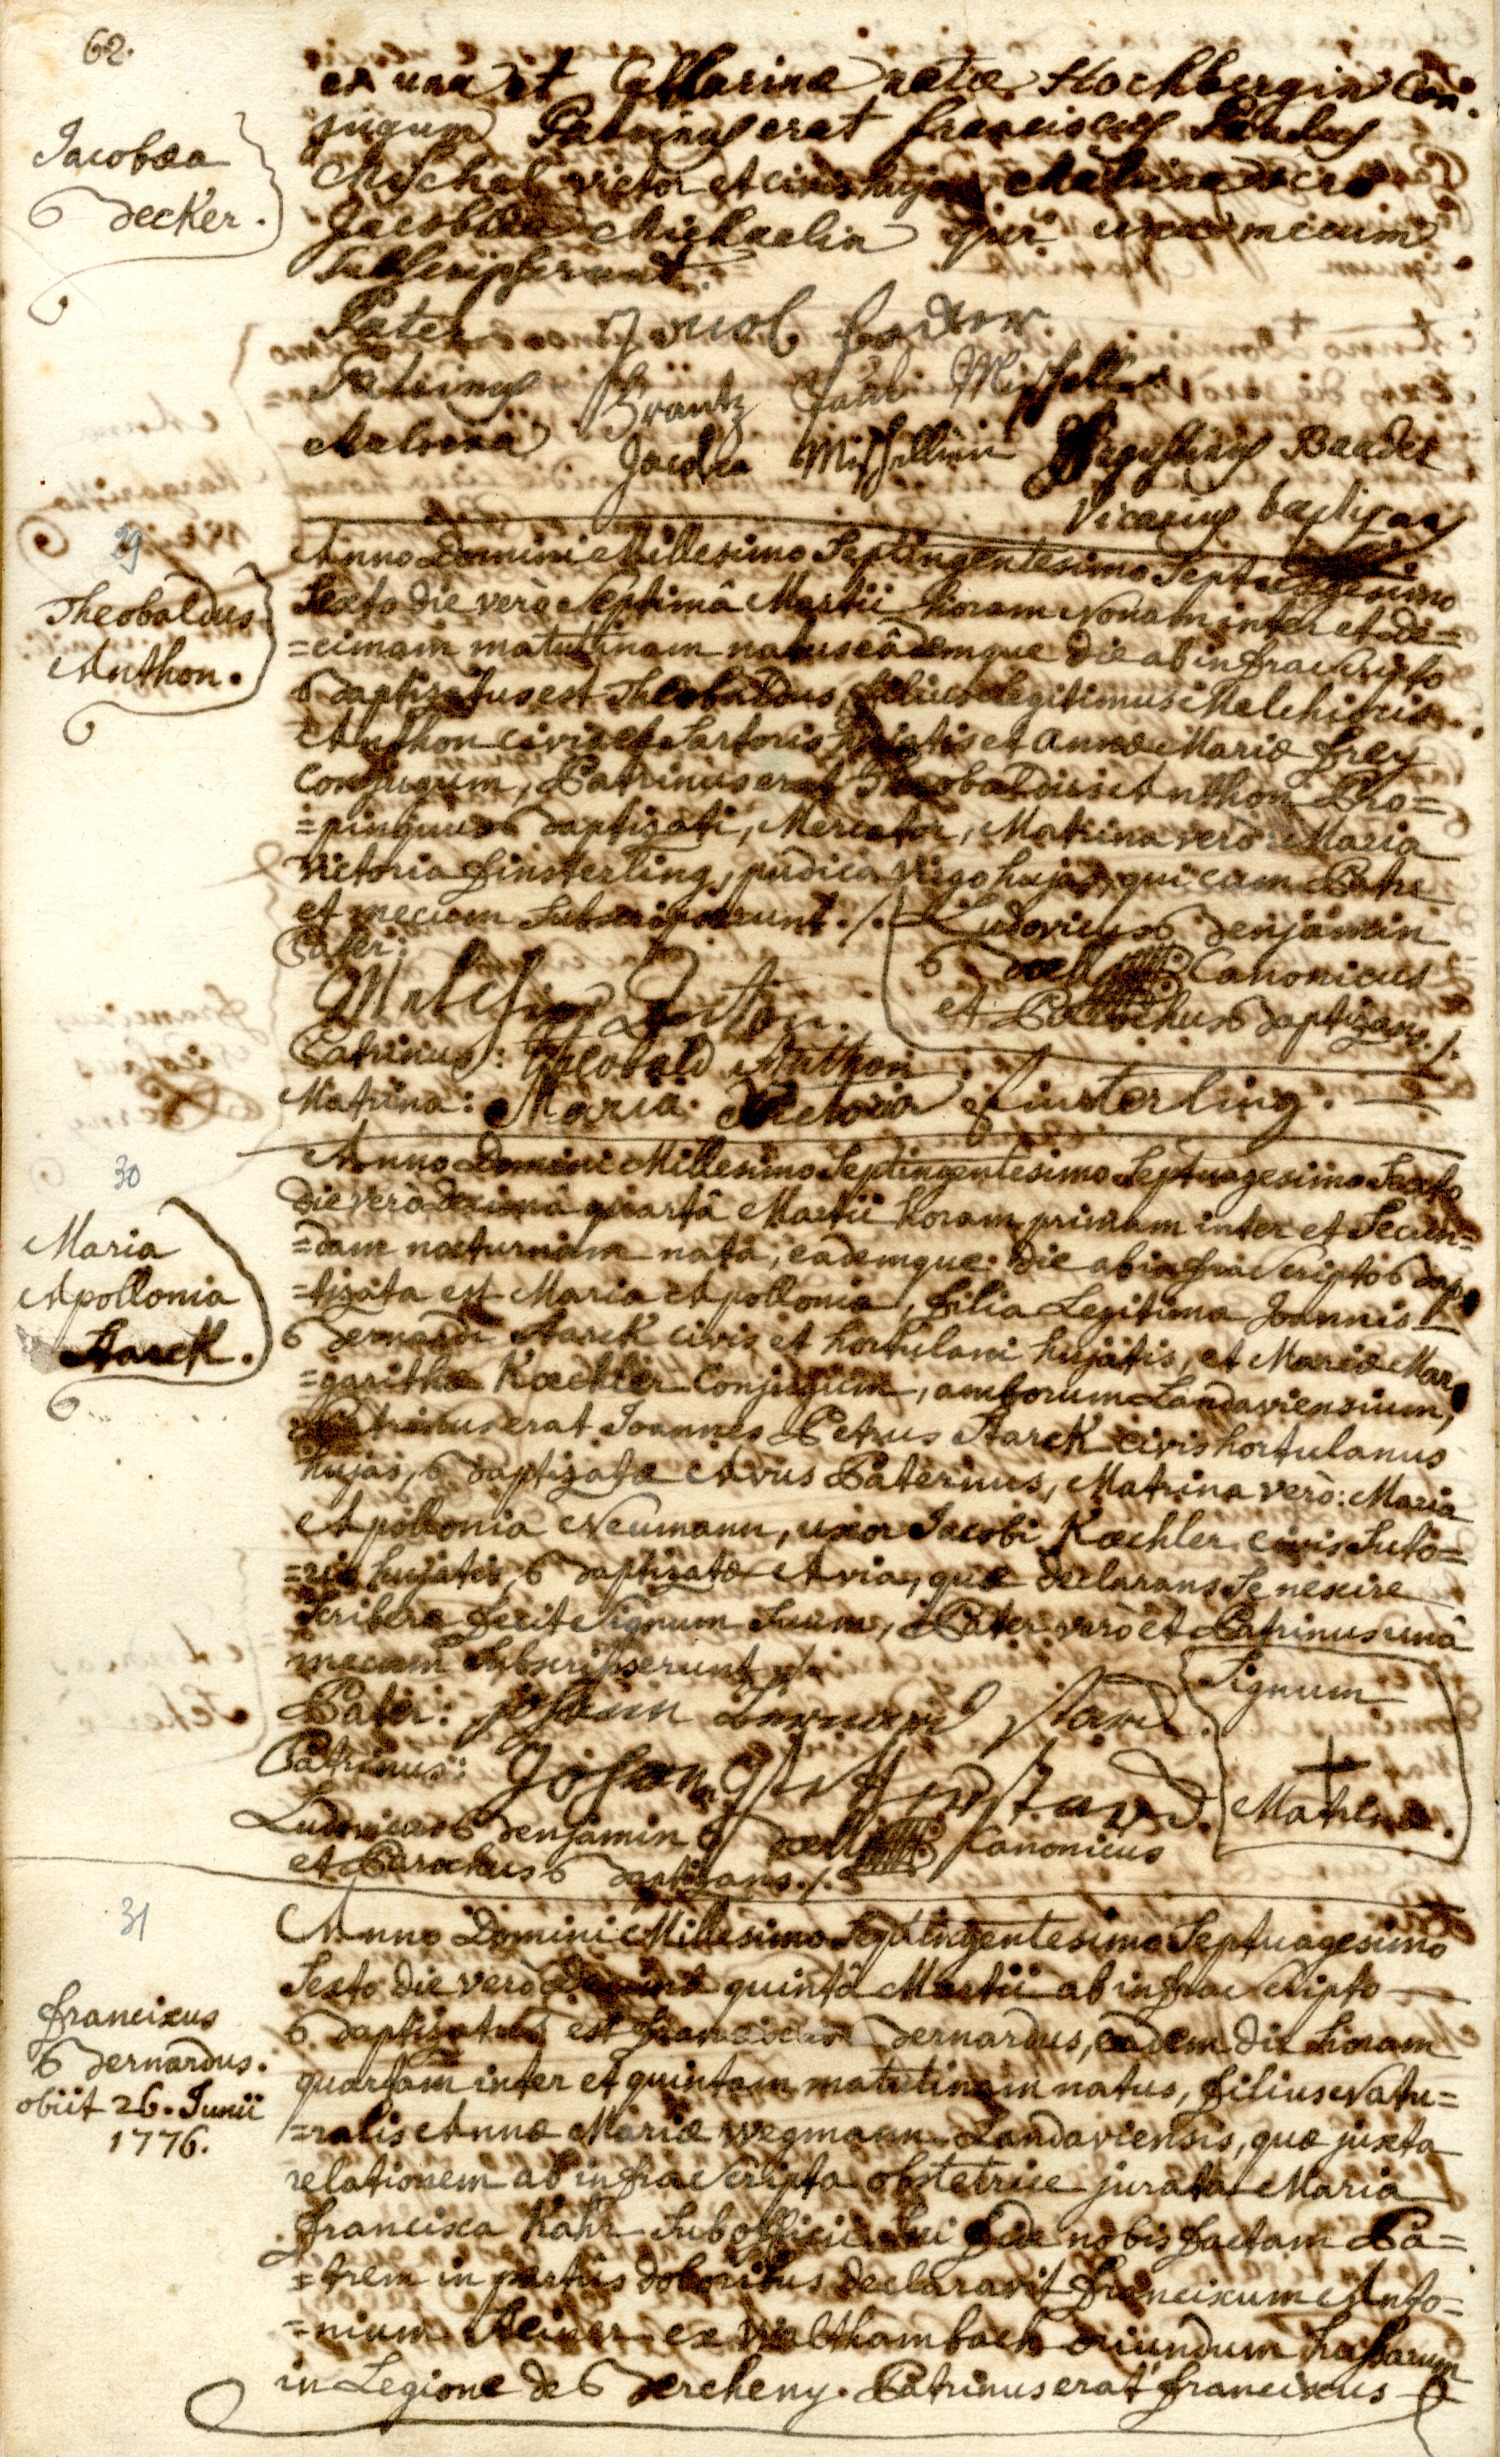 62.
Jacobæa
Becker.
et Catharinæ natæ Hochbergin Con-
jugum Patrinus erat franciscus Paulus
Mischel victor et civis hujas Matrina vero
Jacobæa Michaelin qui una mecum
Subscripserunt.
Pater Jacob
Patrinus Frantz Paul Mischell
Matrina Jacobea Mischellin Baader
Vicarius baptizans
29
Theobaldus
Anthon.
Anno Domini Millesimo Septingentesimo Septuagesimo
Sexto die verò Septimâ Martii horam Nonam inter et de=
=cimam matutinam natus eâdemque die ab infra Scripto
Baptizatus est Theobaldus, filius Legitimus Melchioris
Anthon civis et Sartoris hujatis et Annæ Mariæ frey
Conjugum, Patrinus erat Theobaldus Anthon Pro=
=pinquus Baptizati, Mercator, Matrina verò: Maria
Victoria Finsterling, pudica virgo hujas, qui cum Patre
et mecum Subscripserunt ./.
Ludovicus Benjamin
Boell Canonicus
et Parochus Baptizans ./.
Pater:
Melchior Anton.
Patrinus: Theobald Anthon
Matrina: Maria Victoria Finsterling.
30
Maria
Apollonia
Starck.
Anno Domini Millesimo Septingentesimo Septuagesimo Sexto
die verò decimâ quartâ Martii horam primam inter et Secun=
=dam nocturnam nata, eademque die ab infra Scripto Bap=
=tizata est Maria Apollonia, filia Legitima Joannis
Bernardi Starck civis et hortulani hujatis, et Mariæ Mar=
=garithæ Kœchler Conjugum, amborum Landaviensium,
Patrinus erat Joannes Petrus Starck civis hortulanus
hujas, Baptizatæ Avus Paternus, Matrina verò: Maria
Apollonia Neumann, uxor Jacobi Kœchler civis Suto=
=ris hujatis, Baptizatæ Avia, quæ declarans Se nescire
Scribere fecit Signum Suum, Pater verò et Patrinus unâ
mecum Subscripserunt ./.
Pater: Johann Bernard Starck.
Patrinus: Johann Petter Starck.
Signum
+
Matrinæ.
Ludovicus Benjamin Boell Canonicus
et Parochus Baptizans ./.
31
franciscus
Bernardus.
obiit 26. Junii
1776.
Anno Domini Millesimo Septingentesimo Septuagesimo
Sexto die verò decimâ quintâ Martii ab infra Scripto
Baptizatus est franciscus Bernardus, eâdem die horam
quartam inter et quintam matutinam natus, filius Natu=
=ralis Annæ Mariæ Wegmann Landaviensis, quæ juxta
relationem ab infra Scripta obstetrice jurata Maria
francisca Kahr Sub officii Sui fide nobis factam Pa=
=trem in partûs doloribus declaravit franciscum Anto=
=nium Steiner ex Walthambach oriundum hussarum
in Legione de Bercheny. Patrinus erat franciscus